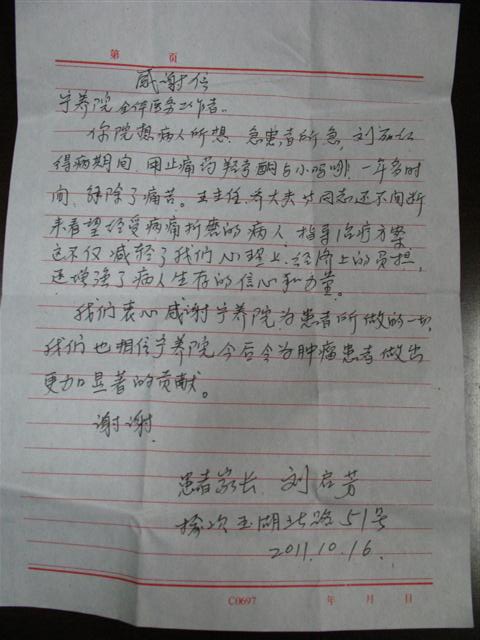 第 页
感谢信
宁养院全体医务工作者:
你院想病人所想,急患者所急,刘
得病期间,用止痛药羟考酮与小吗啡,一年多时
间,解除了痛苦。王主任、乔大夫等同志还不间断
来看望经受病痛折磨的病人,指导治疗方案,
这不仅减轻了我们心理上、经济上的负担,
还增强了病人生存的信心和力量。
我们衷心感谢宁养院为患者所做的一切,
我们也相信宁养院今后会为肿瘤患者做出
更加显著的贡献。
谢谢.
患者家长 刘启芳
榆次玉湖北路51号
2011.10.16.
C0697 年 月 日